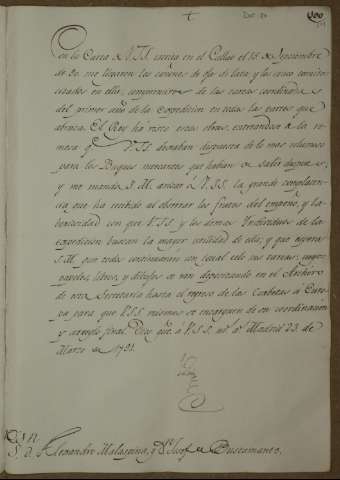 Con la Carta de V.SS. escrita en el Callao el 18 de Septiembre
de 90. me llegaron los caxones de oja de lata, y los cinco
citados en ella, comprensivos de las tareas
del primer año de la Expedicion en todas las partes que
abraza. El Rey ha visto estas obras,
V.SS. dexaban dispuesta de lo mas voluminoso
para los Buques mercantes que habian de salir despues,
y me manda S.M. avisar a V.SS. la grande complacen-
cia que ha recibido al observar los frutos del empeño, y la-
boriosidad con que V.SS. y los demas Individuos de la
expedicion buscan la mayor utilidad de ella, y que espera
S.M. que todos continuarán con igual celo sus tareas, cuyos
papeles, libros, y dibujos se van depositando en el Archivo
de esta Secretaría hasta el regreso de las Corbetas á Euro-
pa para que V.SS. mismos se encarguen de su coordinacion
y arreglo final. Dios gue. á V.SS. ms. as. Madrid 23. de
Marzo de 1791.
S.res D. Alexandro Malaspina, y Dn. Josef de Bustamante.